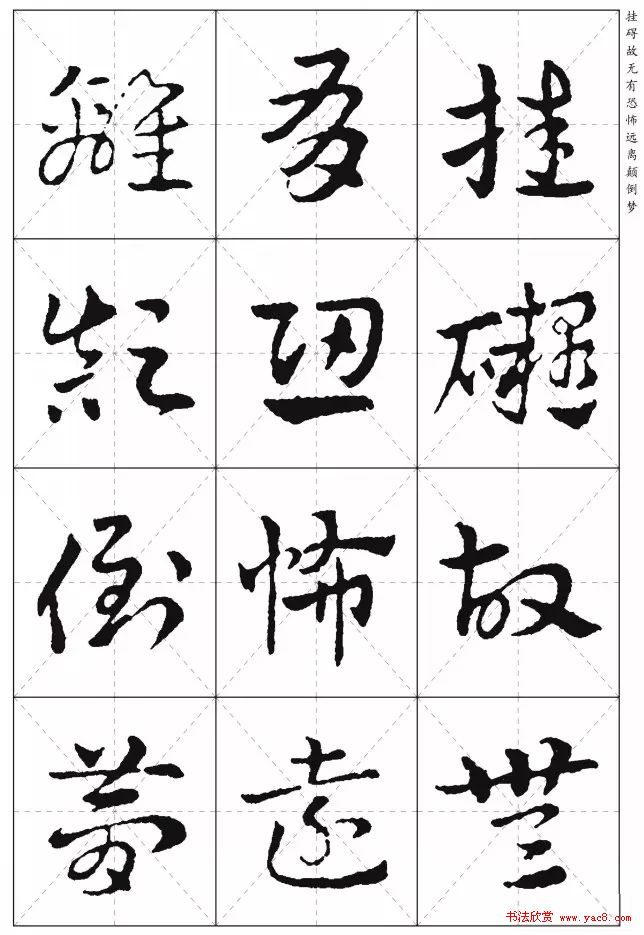 挂礙故無
有恐怖遠
離顛倒夢
挂碍故无有恐怖远离颠倒梦
书法欣赏 www.yac8.com